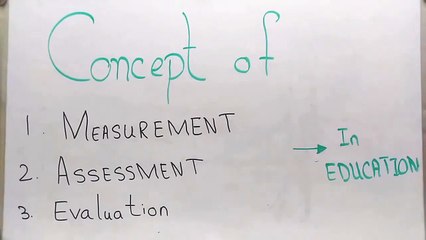 Concept of
1. MEASUREMENT
2. ASSESSMENT
3. Evaluation
→ In
EDUCATION